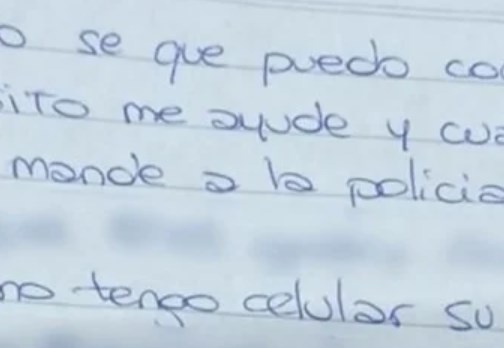 o se que puedo co
ito me ayude y cua
mande a la policia
no tengo celular su